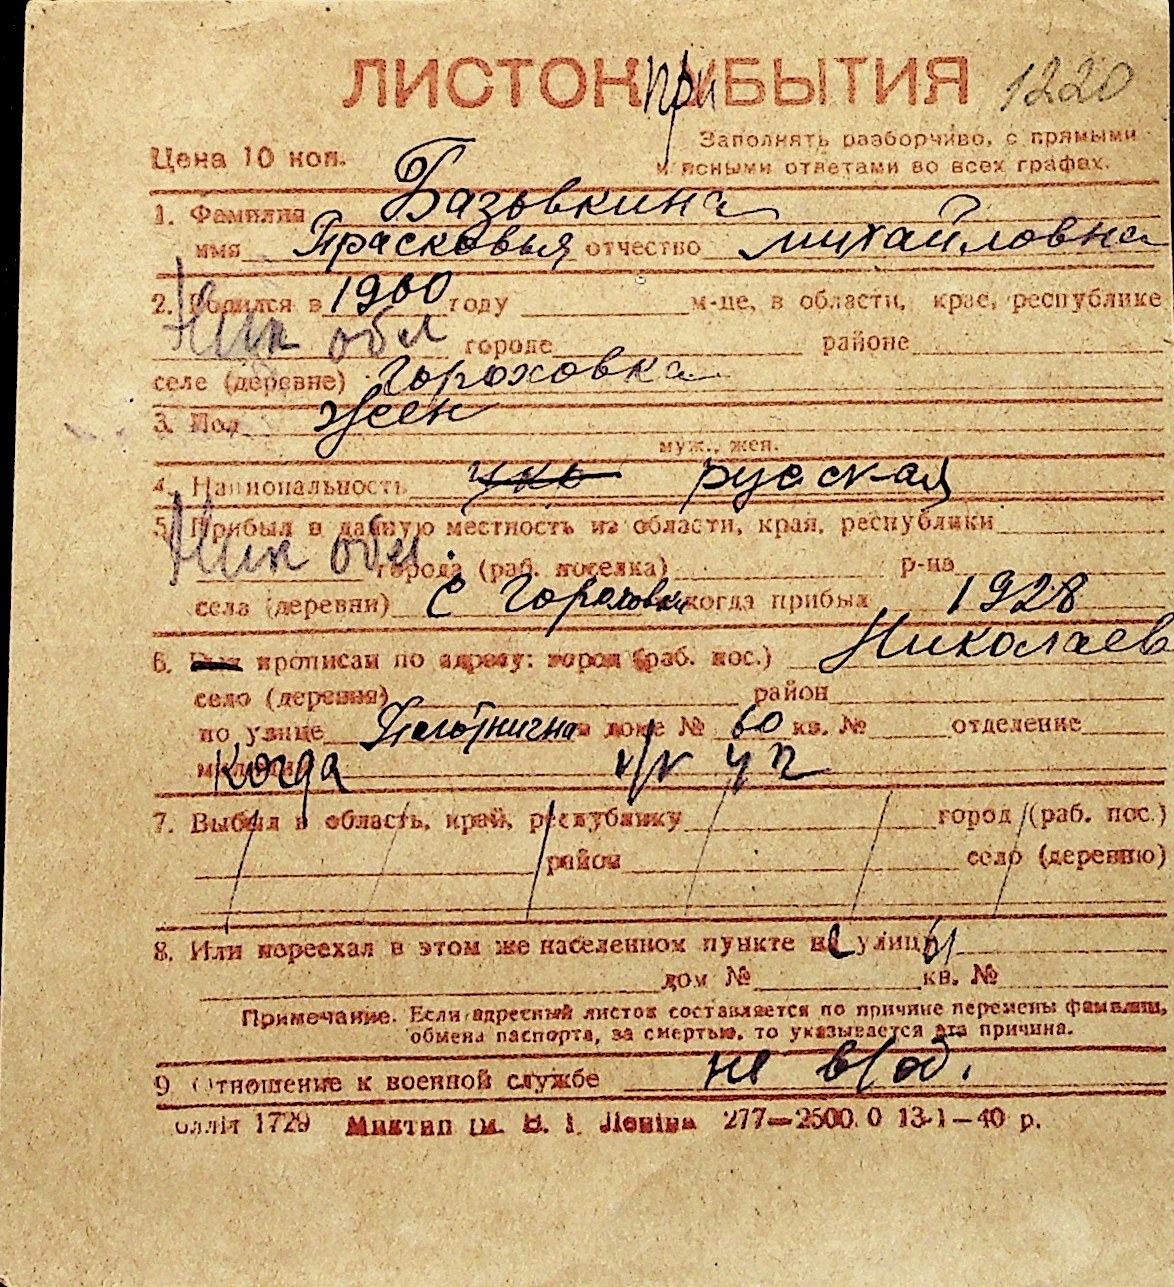 ЛИСТОК при БЫТИЯ 1220
Цена 10 коп.
Заполнять разборчиво, с прямыми
и ясными ответами во всех графах.
1. Фамилия Базовкина
имя Прасковья отчество михайловна
2. Родился в 1900 году м-це, в области, крае, республике
Ник обл городе районе
селе (деревне) Гороховка
3. Пол жен
муж., жен.
4. Национальность укр русская
5. Прибыл в данную местность из области, края, республики
Ник обл. города (раб. поселка) р-на
села (деревни) с Гороховки когда прибыл 1928
6. прописан по адресу: город (раб. пос.) Николаев
село (деревня) район
по улице дом № 60 кв. № отделение
Когда
7. Выбыл в область, край, республику город (раб. пос.)
район село (деревню)
8. Или переехал в этом же населенном пункте с улицы
дом № кв. №
Примечание. Если адресный листок составляется по причине перемены фамилии,
обмена паспорта, за смертью, то указывается эта причина.
9. Отношение к военной службе не в/об.
олліт 1729 Миктип ім. В. І. Леніна 277—2500.0 13-1—40 р.